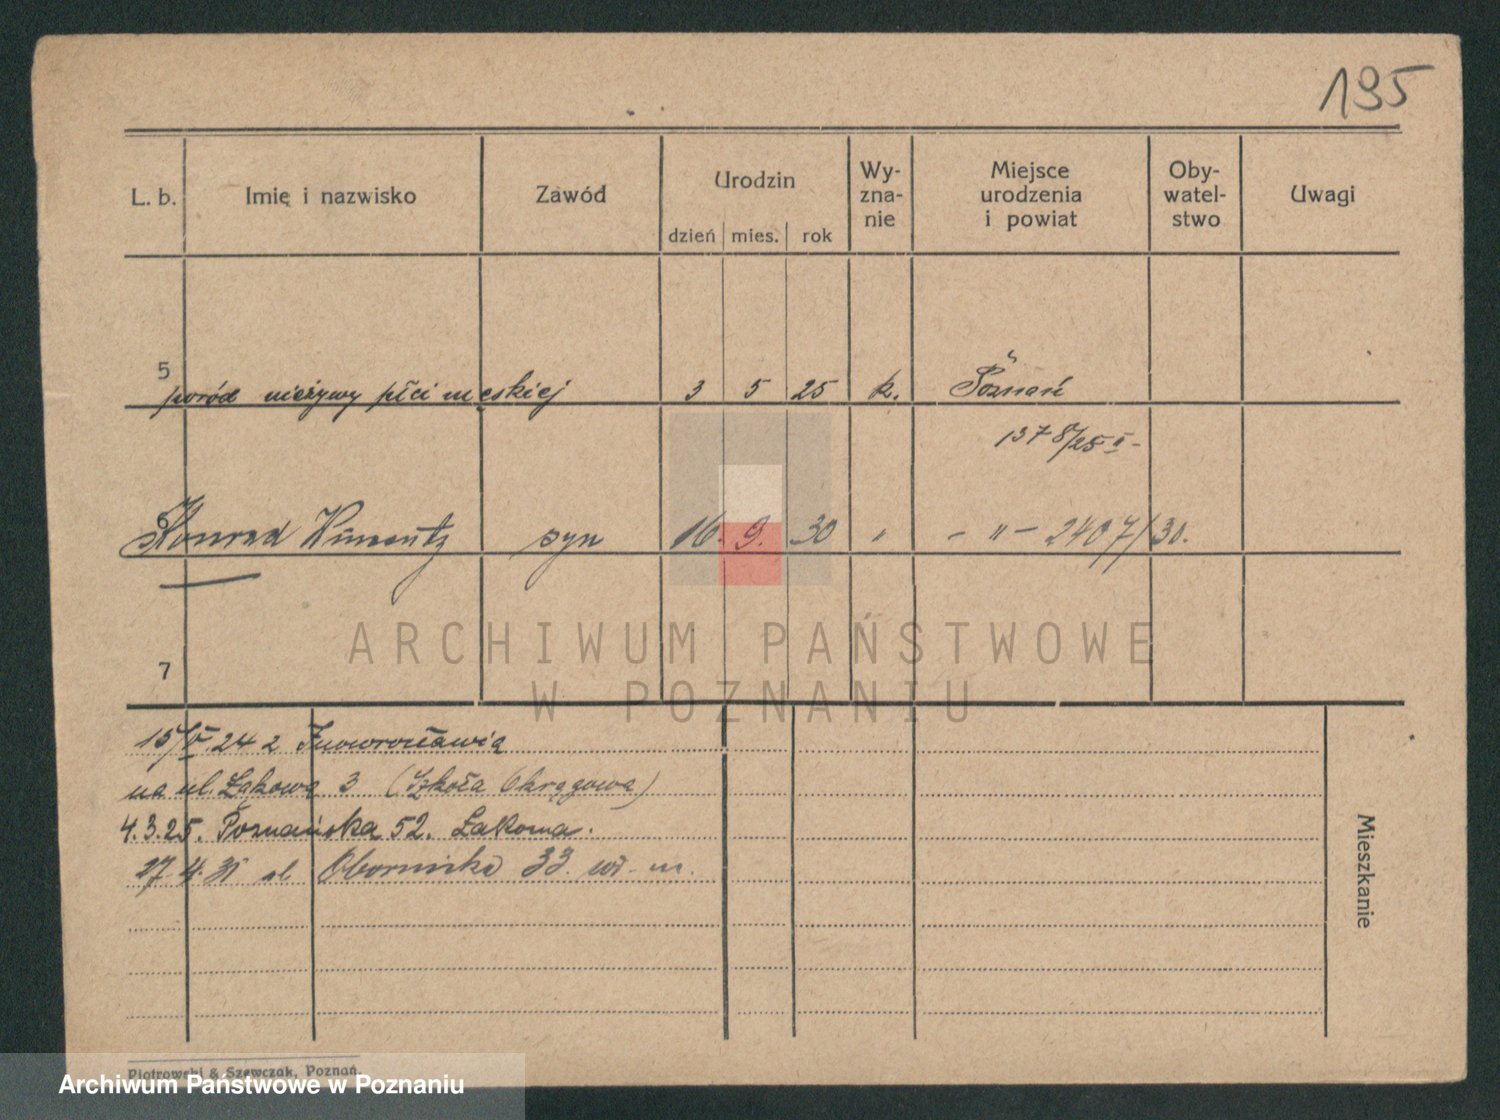 195
L. b. Imię i nazwisko Zawód Urodzin Wy-
zna-
nie Miejsce
urodzenia
i powiat Oby-
watel-
stwo Uwagi
dzień mies. rok
5
poród nieżywy płci męskiej 3 5 25 k. Poznań
1378/25 II -
6
Konrad syn 16. 9. 30 " - " - 2407/30.
7
ARCHIWUM PAŃSTWOWE
W POZNANIU
15/V.24 z Inowrocławia
na ul. Łąkową 3 (Szkoła Okręgowa)
4.3.25. Poznańska 52. Łakoma.
27 4. 31 Obornicka 33. wł. m.
Mieszkanie
Piotrowski & Szewczak, Poznań.
Archiwum Państwowe w Poznaniu